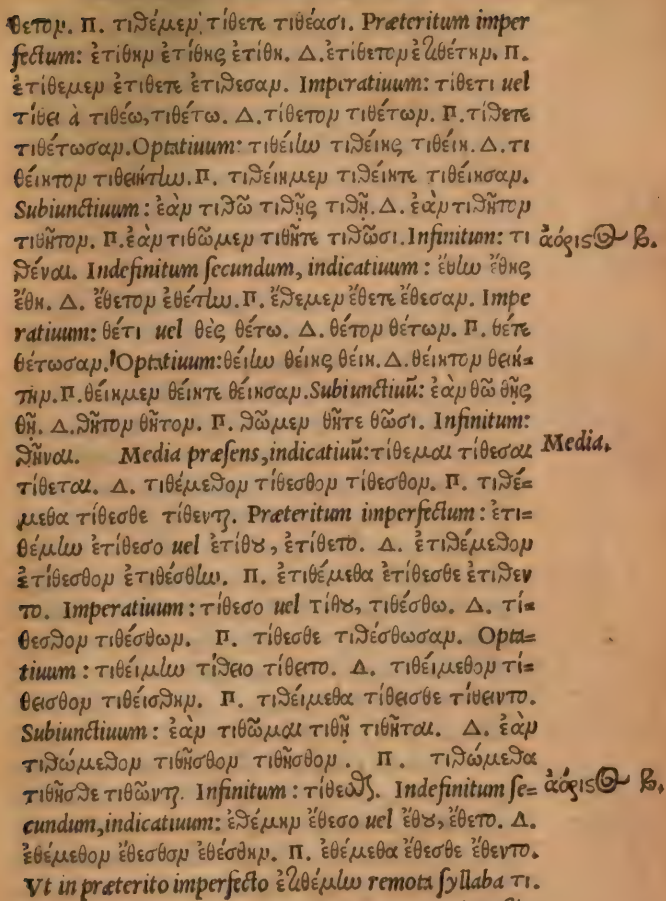 θετον. Π. τιθέμεν τίθετε τιθέασι. Præteritum imper
fectum: ἐτίθην ἐτίθης ἐτίθη. Δ. ἐτίθετον ἐτιθέτην. Π.
ἐτίθεμεν ἐτίθετε ἐτίθεσαν. Imperatiuum: τίθετι uel
τίθει à τιθέω, τιθέτω. Δ. τίθετον τιθέτων. Π. τίθετε
τιθέτωσαν. Optatiuum: τιθείην τιθείης τιθείη. Δ. τι
θείητον τιθειήτην. Π. τιθείημεν τιθείητε τιθείησαν.
Subiunctiuum: ἐὰν τιθῶ τιθῇς τιθῇ. Δ. ἐὰν τιθῆτον
τιθῆτον. Π. ἐὰν τιθῶμεν τιθῆτε τιθῶσι. Infinitum: τι
ἀόριστος β.
θέναι. Indefinitum secundum, indicatiuum: ἔθην ἔθης
ἔθη. Δ. ἔθετον ἐθέτην. Π. ἔθεμεν ἔθετε ἔθεσαν. Impe
ratiuum: θέτι uel θὲς θέτω. Δ. θέτον θέτων. Π. θέτε
θέτωσαν. Optatiuum: θείην θείης θείη. Δ. θείητον θειή=
την. Π. θείημεν θείητε θείησαν. Subiunctiuū: ἐὰν θῶ θῇς
θῇ. Δ. θῆτον θῆτον. Π. θῶμεν θῆτε θῶσι. Infinitum:
θῆναι. Media præsens, indicatiuū: τίθεμαι τίθεσαι
Media.
τίθεται. Δ. τιθέμεθον τίθεσθον τίθεσθον. Π. τιθέ=
μεθα τίθεσθε τίθενται. Præteritum imperfectum: ἐτι=
θέμην ἐτίθεσο uel ἐτίθου, ἐτίθετο. Δ. ἐτιθέμεθον
ἐτίθεσθον ἐτιθέσθην. Π. ἐτιθέμεθα ἐτίθεσθε ἐτίθεν
το. Imperatiuum: τίθεσο uel τίθου, τιθέσθω. Δ. τί=
θεσθον τιθέσθων. Π. τίθεσθε τιθέσθωσαν. Opta=
tiuum: τιθείμην τίθειο τίθειτο. Δ. τιθείμεθον τί=
θεισθον τιθείσθην. Π. τιθείμεθα τίθεισθε τίθειντο.
Subiunctiuum: ἐὰν τιθῶμαι τιθῇ τιθῆται. Δ. ἐὰν
τιθώμεθον τιθῆσθον τιθῆσθον. Π. τιθώμεθα
τιθῆσθε τιθῶνται. Infinitum: τίθεσθαι. Indefinitum se=
ἀόριστος β.
cundum, indicatiuum: ἐθέμην ἔθεσο uel ἔθου, ἔθετο. Δ.
ἐθέμεθον ἔθεσθον ἐθέσθην. Π. ἐθέμεθα ἔθεσθε ἔθεντο.
Vt in præterito imperfecto ἐτιθέμην remota syllaba τι.